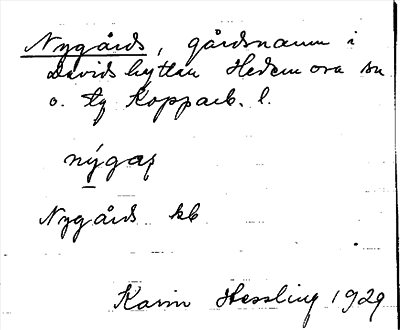 Nygårds, gårdsnamn i
Davidshyttan Hedemora sn
o. tg Kopparb. l.
nýgaș
Nygårds kb
Karin Hessling 1929